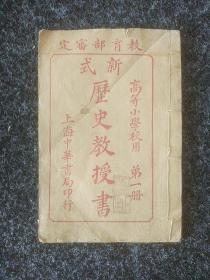 教育部審定
新式
高等小學校用 第一册
歷史教授書
上海中華書局印行